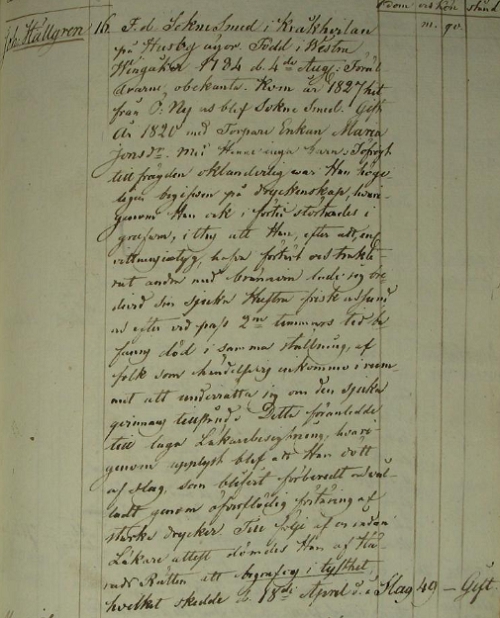 from och ön stånd
Joh: Hällgren 16. F.d. SokneSmed i Kråkhvilan m. qv.
på Husby ägor. Född i Westra
Wingåker 1784 d. 4de Aug: Föräl
drarne, obekante. Kom år 1827 hit
från Ö: Ny och blef Sokne Smed. Gift
År 1820 med Torpare Enkan Maria
Jonsdr. Med Henne inga barn. Till
frägden oklanderlig war Han höge
ligen begifwen på dryckenskap, hvari-
genom Han ock i förtid störtades i
grafwen, i thy att Han, efter att, en
rättmägtig, hafva förtärt och trakte-
rat andra med bränvin lade sig bre
devid sin sjuka Hustru frisk och sund
och efter vid pass 2ne timmars tid be
fanns död i samma ställning, af
folk som händelsevis inkommo i rum
met att underrätta sig om den sjuka
qvinnans tillstånd. Detta föranledde
till laga Läkarebesigtning, hvari-
genom upplyst blef att Han dött
af Slag, som blifvit förberedt och vål-
ladt genom öfverflödig förtäring af
starka drycker. Till följe af en sådan
Läkare attest dömdes Han af Hä-
rads Rätten att begrafvas i tysthet
hvilket skedde d. 18de April d.å. Slag 49 – Gift.